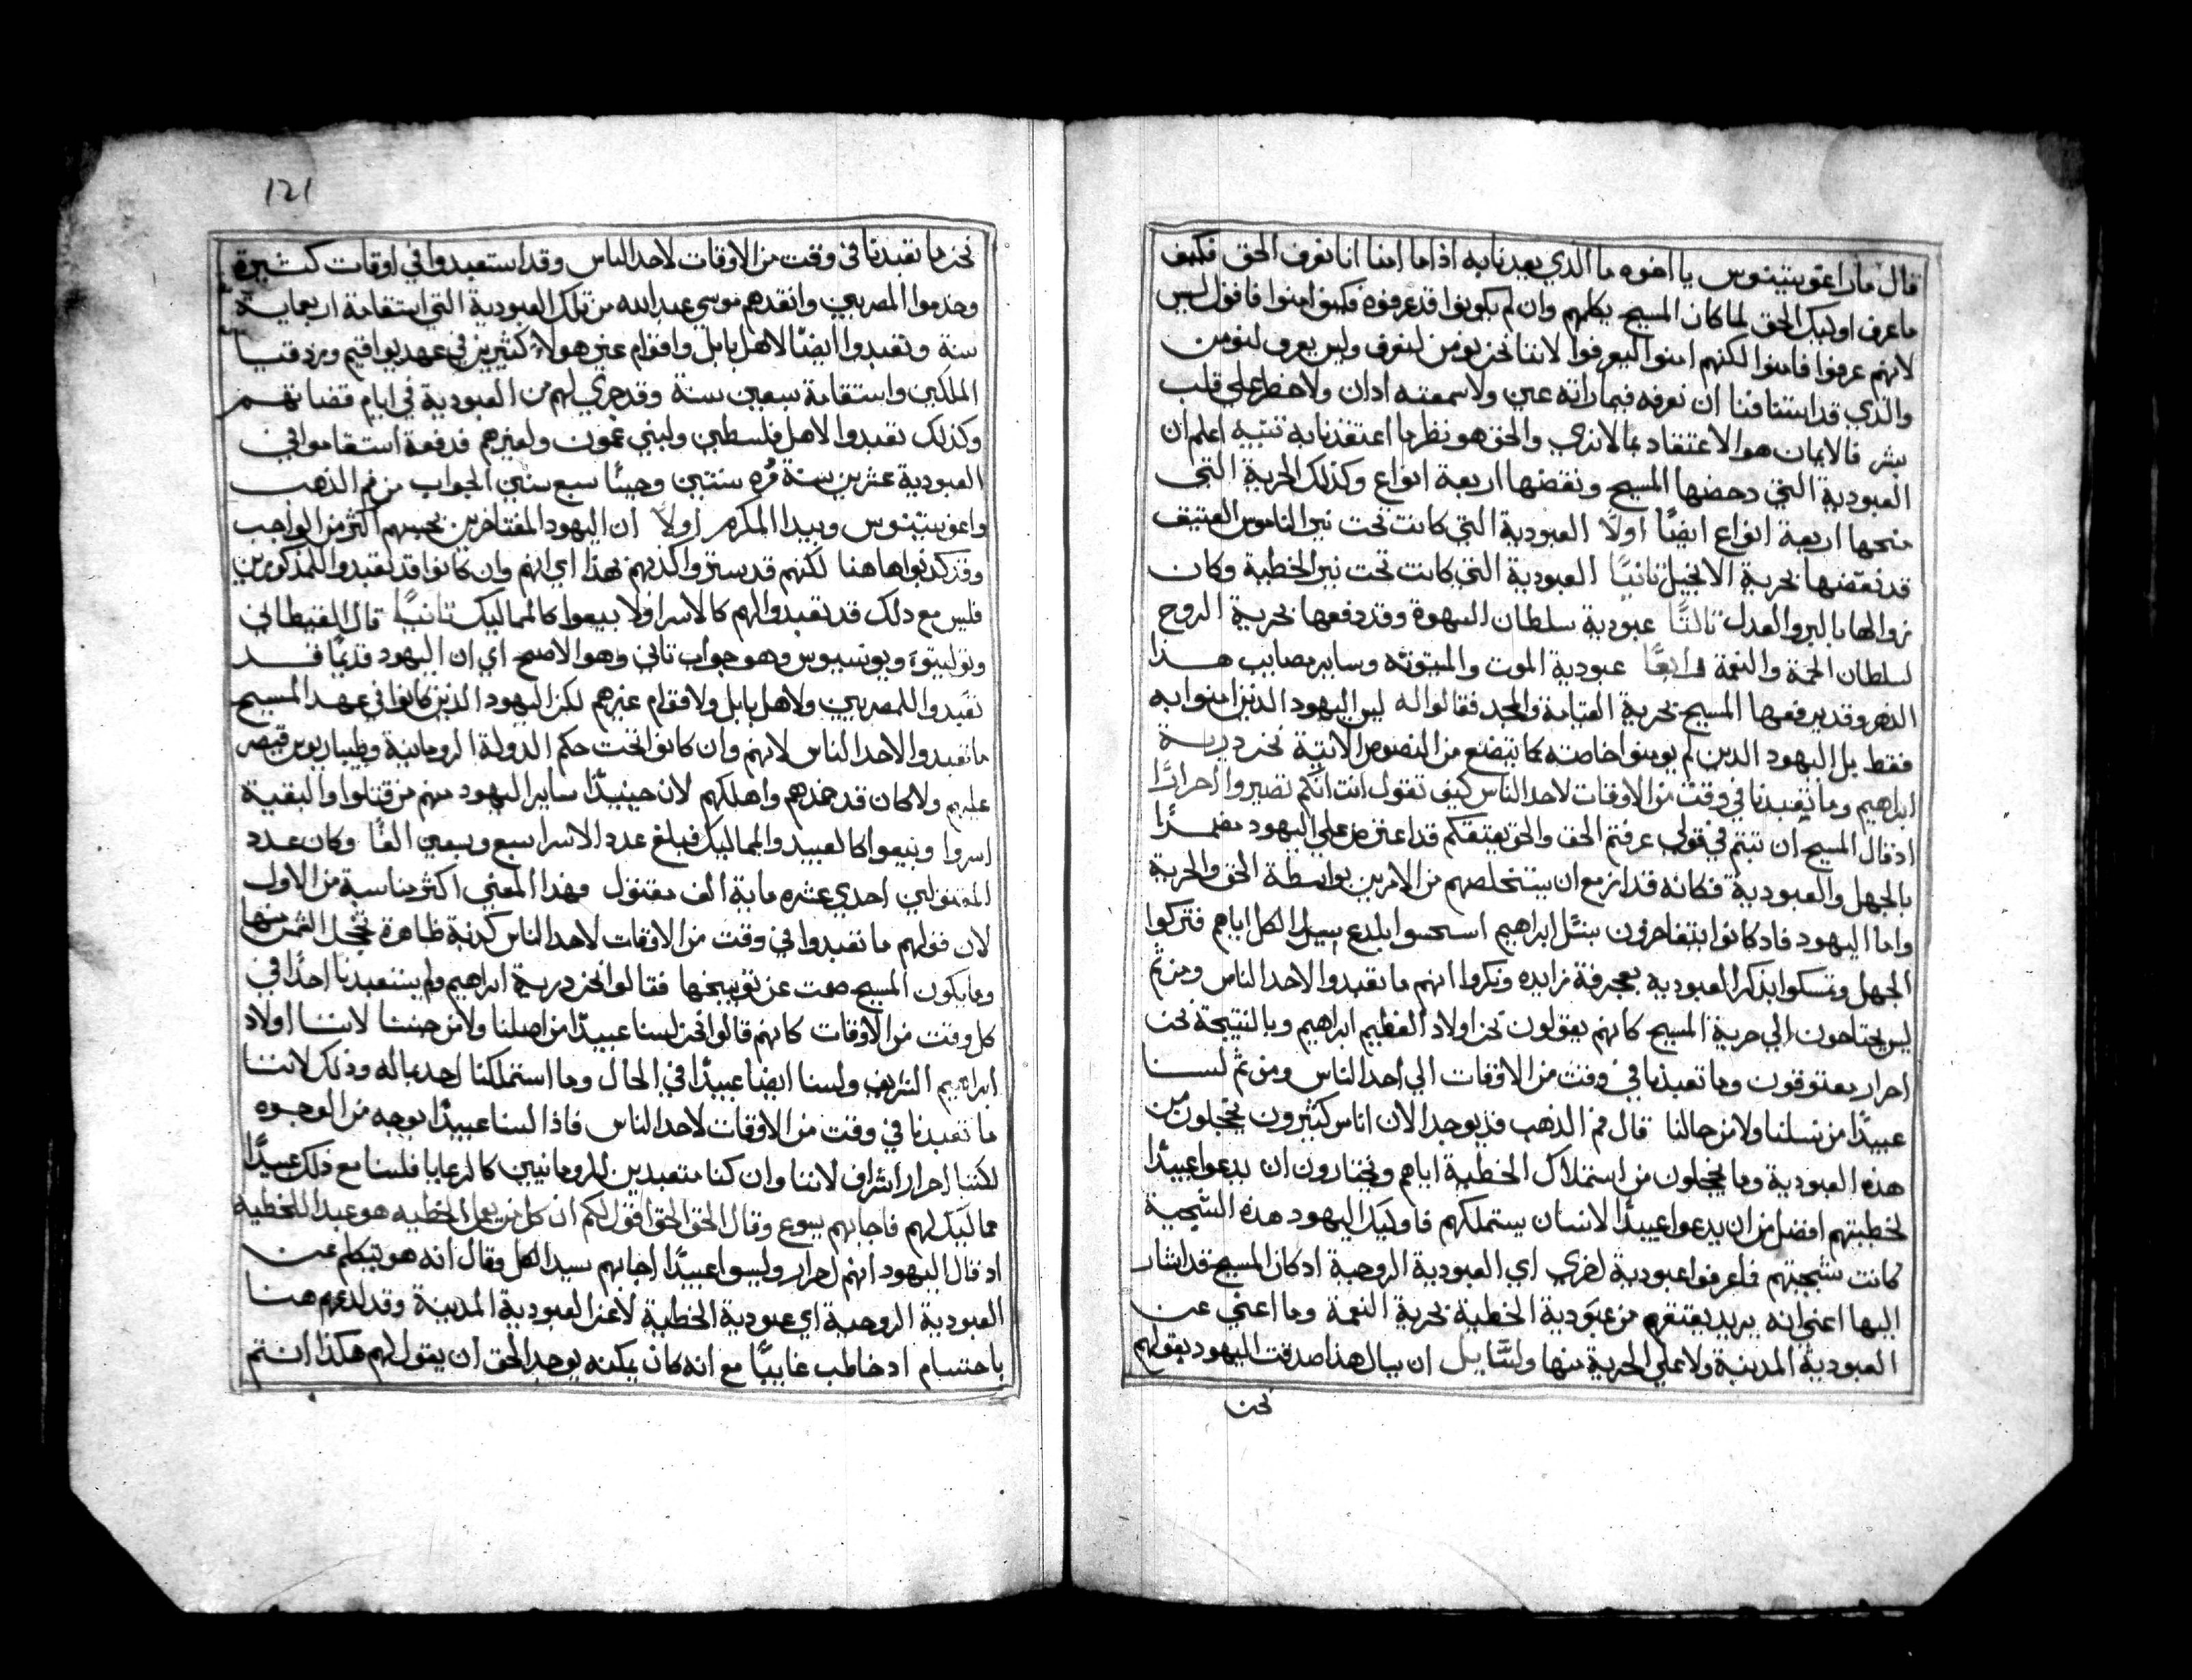 قال مار اغوستينوس يا اخوه ما الذي يعدنا به اذا ما امنا انا نعرف الحق فكيف
ما عرف اوليك الحق لما كان المسيح يكلمهم وان لم يكونوا قد عرفوه فكيف امنوا فاقول ليس
لانهم عرفوا فامنوا لكنهم امنوا ليعرفوا لاننا نحن نومن لنعرف وليس نعرف لنومن
والذي قد استنافنا ان نعرفه فيما راته عين ولا سمعته ادان ولا خطر علي قلب
بشر فالايمان هو الاعتقاد بما لا نري والحق هو نظر ما اعتقدنا به تنبيه اعلم ان
العبودية التي دحضها المسيح ونقضها اربعة انواع وكذلك الحرية التي
منحها اربعة انواع ايضًا اولًا العبودية التي كانت تحت نير الناموس العتيق
قد نقضها بحرية الانجيل ثانيًا العبودية التي كانت تحت نير الخطية وكان
زوالها بالبر والعدل ثالثًا عبودية سلطان الشهوة وقد دفعها بحرية الروح
لسلطان الحمة والنعمة رابعًا عبودية الموت والميتوته وساير مصايب هذا
الدهر وقد يرفعها المسيح بحرية القيامة والمجد فقالوا له ليس اليهود الذين امنوا به
فقط بل اليهود الدين لم يومنوا خاصته كما يتضع من النصوص الاتية نحن درية
ابراهيم وما تعبدنا في وقت من الاوقات لاحد الناس كيف تقول انت انكم تصيروا احرارًا
اد قال المسيح ان تبتم في قولي عرفتم الحق والحق يعتقكم قد اعترض علي اليهود مضمرًا
بالجهل والعبودية فكانه قد ازمع ان يستخلصهم من الامرين بواسطة الحق والحرية
واما اليهود فاد كانوا يتفاخرون بنسل ابراهيم استحسوا بلدع سيد الكل اياهم فتركوا
الجهل وتمسكوا بذكر العبودية بعجرفة زايده ونكروا انهم ما تعبدوا لاحد الناس ومن ثم
ليس يحتاجون الي حرية المسيح كانهم يقولون نحن اولاد العظيم ابراهيم وبالنتيجة نحن
احرار معتوقون وما تعبدنا في وقت من الاوقات الي احد الناس ومن ثم لسنا
عبيدًا من نسلنا ولا من حالنا قال فم الذهب قد يوجد الان اناس كثيرون يخجلون من
هذه العبودية وما يخجلون من استملاك الخطية اياهم ويختارون ان يدعوا عبيدًا
لخطيتهم افضل من ان يدعوا عبيدًا لانسان يستملكهم فاوليك اليهود هذه الشجية
كانت شجيتهم فلعرفوا عبودية اخري اي العبودية الروحية اد كان المسيح قد اشار
اليها اعني انه يريد يعتقهم من عبودية الخطية بحرية النعمة وما اعني عن
العبودية المدنية ولا علي الحرية منها ولسايل ان يسال هذا صدقت اليهود بقولهم
نحن
121
نحن ما تعبدنا في وقت من الاوقات لاحد الناس وقد استعبدوا في اوقات كثيرة
وخدموا المصريين وانقدهم موسي عبد الله من تلك العبودية التي استقامة اربعماية
سنة وتعبدوا ايضًا لاهل بابل واقوام غير هولاء كثيرين في عهد يواقيم وصدقتيا
الملكين واستقامة سبعين سنة وقد جري لهم من العبودية في ايام قضاتهم
وكذلك تعبدوا لاهل فلسطين ولبني عمون ولغيرهم فدفعة استقاموا في
العبودية عشرين سنة ومره سنتين وحينًا سبع سنين الجواب من فم الذهب
واغوستينوس وبيدا المكرم اولًا ان اليهود المفتاخرين بجنسهم اكثر من الواجب
وقد كدبوا هاهنا لكنهم قد ستروا كذبهم بهذا اي انهم وان كانوا قد تعبدوا للمذكورين
فليس مع دلك قد تعبدوا لهم كالاسرا ولا بيعوا كالمماليك ثانيًا قال القيطاني
وتوليتوة ويونسيوس وهو جواب تاني وهو الاصح اي ان اليهود قديمًا قد
تعبدوا للمصريين ولاهل بابل ولاقوام غيرهم لكن اليهود الذين كانوا في عهد المسيح
ما تعبدوا لاحد الناس لانهم وان كانوا تحت حكم الدولة الرومانية وطيباريوس قيصر
عليهم ولا كان قد خدهم واهلكهم لان حينيدًا ساير اليهود منهم من قتلوا والبقية
اسروا وبيعوا كالعبيد والمماليك فبلغ عدد الاسرا سبع وسبعين الفًا وكان عدد
المقتولين احدي عشره ماية الف مقتول فهذا المعني اكثر مناسبة من الاول
لان قولهم ما تعبدوا في وقت من الاوقات لاحد الناس كدبة ظاهرة تخجل الشمس منها
وما يكون المسيح صمت عن توبيخها فقالوا نحن درية ابراهيم ولم يستعبدنا احدًا في
كل وقت من الاوقات كانهم قالوا نحن لسنا عبيدًا من اصلنا ولا من جنسنا لاننا اولاد
ابراهيم الشريف ولسنا ايضًا عبيدًا في الحال وما استملكنا احد بماله ودلك لاننا
ما تعبدنا في وقت من الاوقات لاحد الناس فاذا لسنا عبيدًا بوجه من الوجوه
لكننا احرار اشراف لاننا وان كنا متعبدين للرومانيين كالرعايا فلسنا مع ذلك عبيدًا
مماليك لهم فاجابهم يسوع وقال الحق الحق اقول لكم ان كل من يعمل الخطيه هو عبدا للخطيه
اد قال اليهود انهم احرار وليسوا عبيدًا اجابهم سيد الكل فقال انه هو يتكلم عن
العبودية الروحية اي عبودية الخطية لا عن العبودية المدنية وقد لدعهم هنا
باحتسام اد خاطب غايبًا مع انه كان يمكنه يوجد الحق ان يقول لهم هكذا انتم